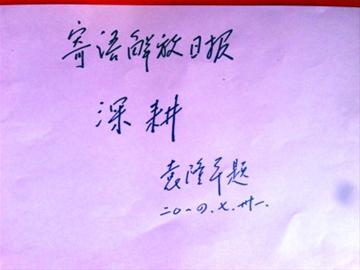 寄语解放日报
深耕
袁隆平题
二〇一四.七.卅一.